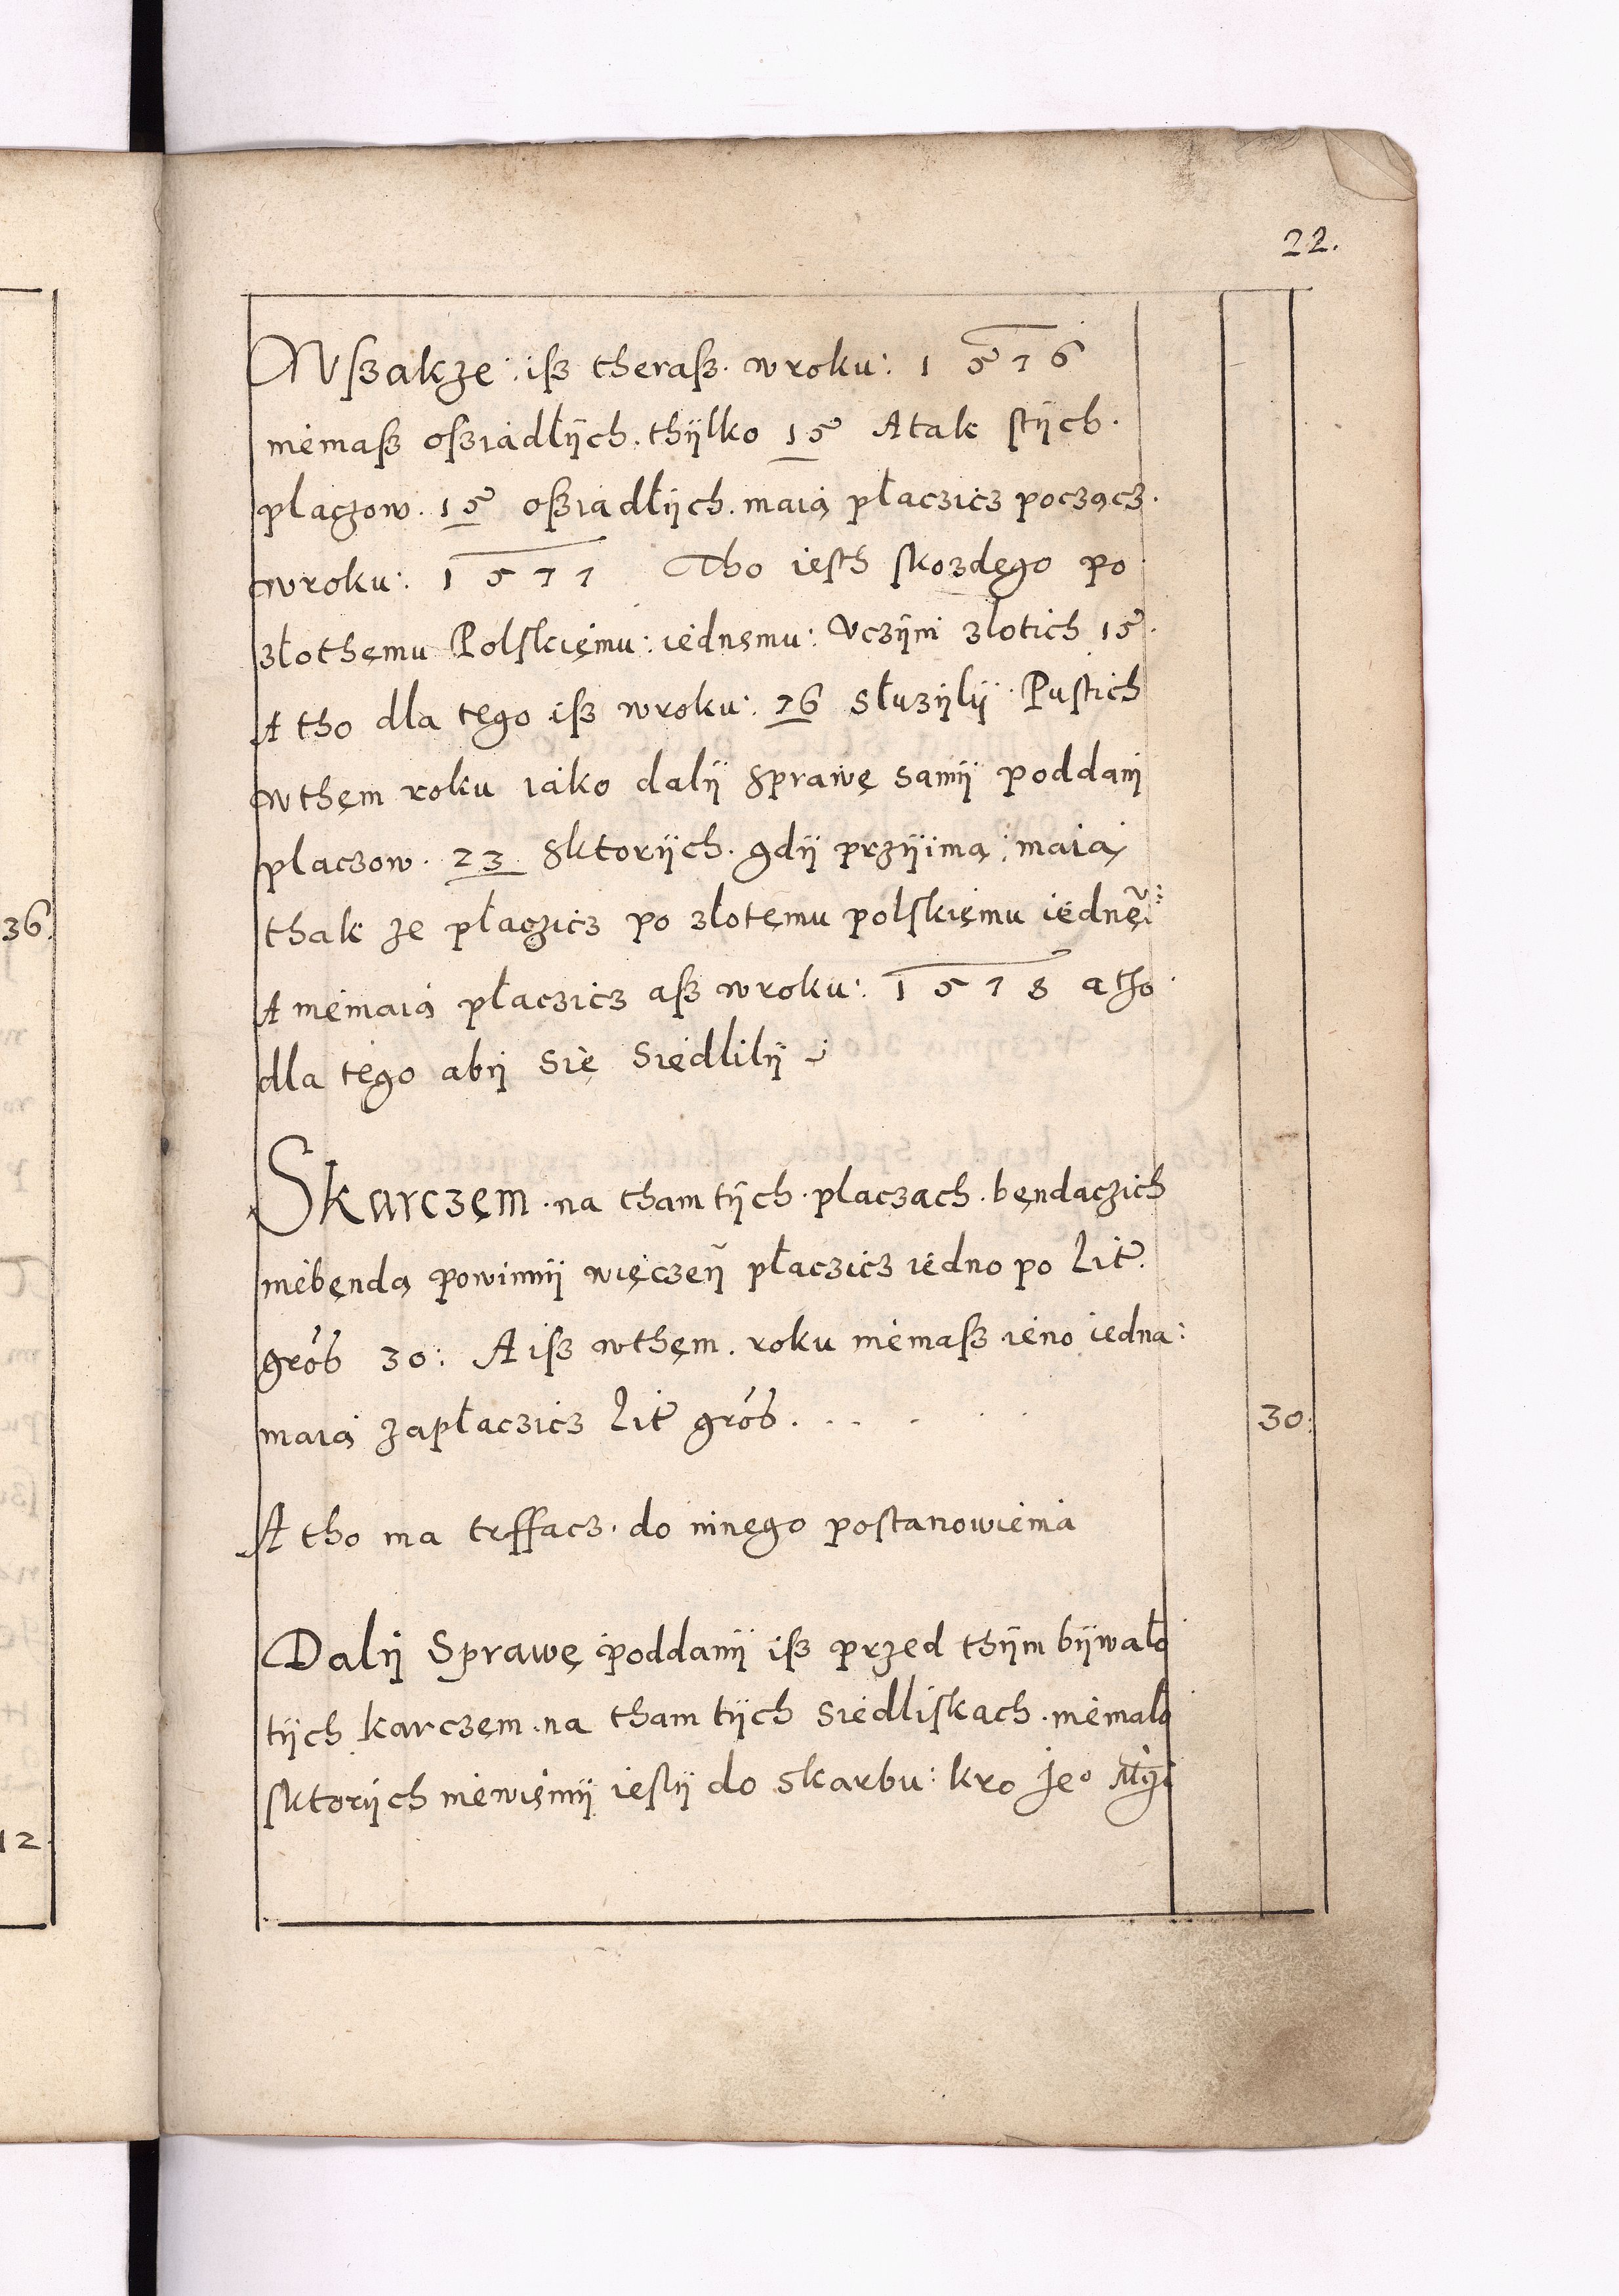 22.
Wſzakże : iſz theraſz. w roku: 1576
niemaſz oſziadłÿch. thÿlko 15 A tak ſtÿch.
płaczow. 15 oſziadłÿch. maią płaczicz począcz.
w roku: 1577 Tho ieſth ſkozdęgo po
złothęmu Polſkięmu: iednemu: Vczÿni złotich 15.
A tho dla tęgo iſz w roku: 76 służÿlÿ Puſtich
w thęm roku iako dalÿ sprawę samÿ poddani
placzow. 23 sktorÿch. gdÿ przÿimą, maią
thak że płaczicz po złotęmu polſkięmu iednęṁ:
A niemaią płaczicz aſz w roku: 1578 a tho
dla tęgo abÿ Się Siedlilÿ
Skarczęm. na tham tÿch. placzach. bęndaczich
niebęndą powinnÿ więczeÿ płaczicz iedno po Lit.
gros 30: A iſz w thęm. roku niemaſz ieno iedna:
maią zapłaczicz Lit gros. . . . . . 30:
A tho ma trffacz. do ninęgo poſtanowienia
Dalÿ Sprawę poddanÿ iſz przed thÿm bÿwało
tÿch karczęm. na tham tÿch Siedliſkach. niemało
ſktorÿch niewięmÿ ieſlÿ do skarbu: kro Jeº Mći
36.
12